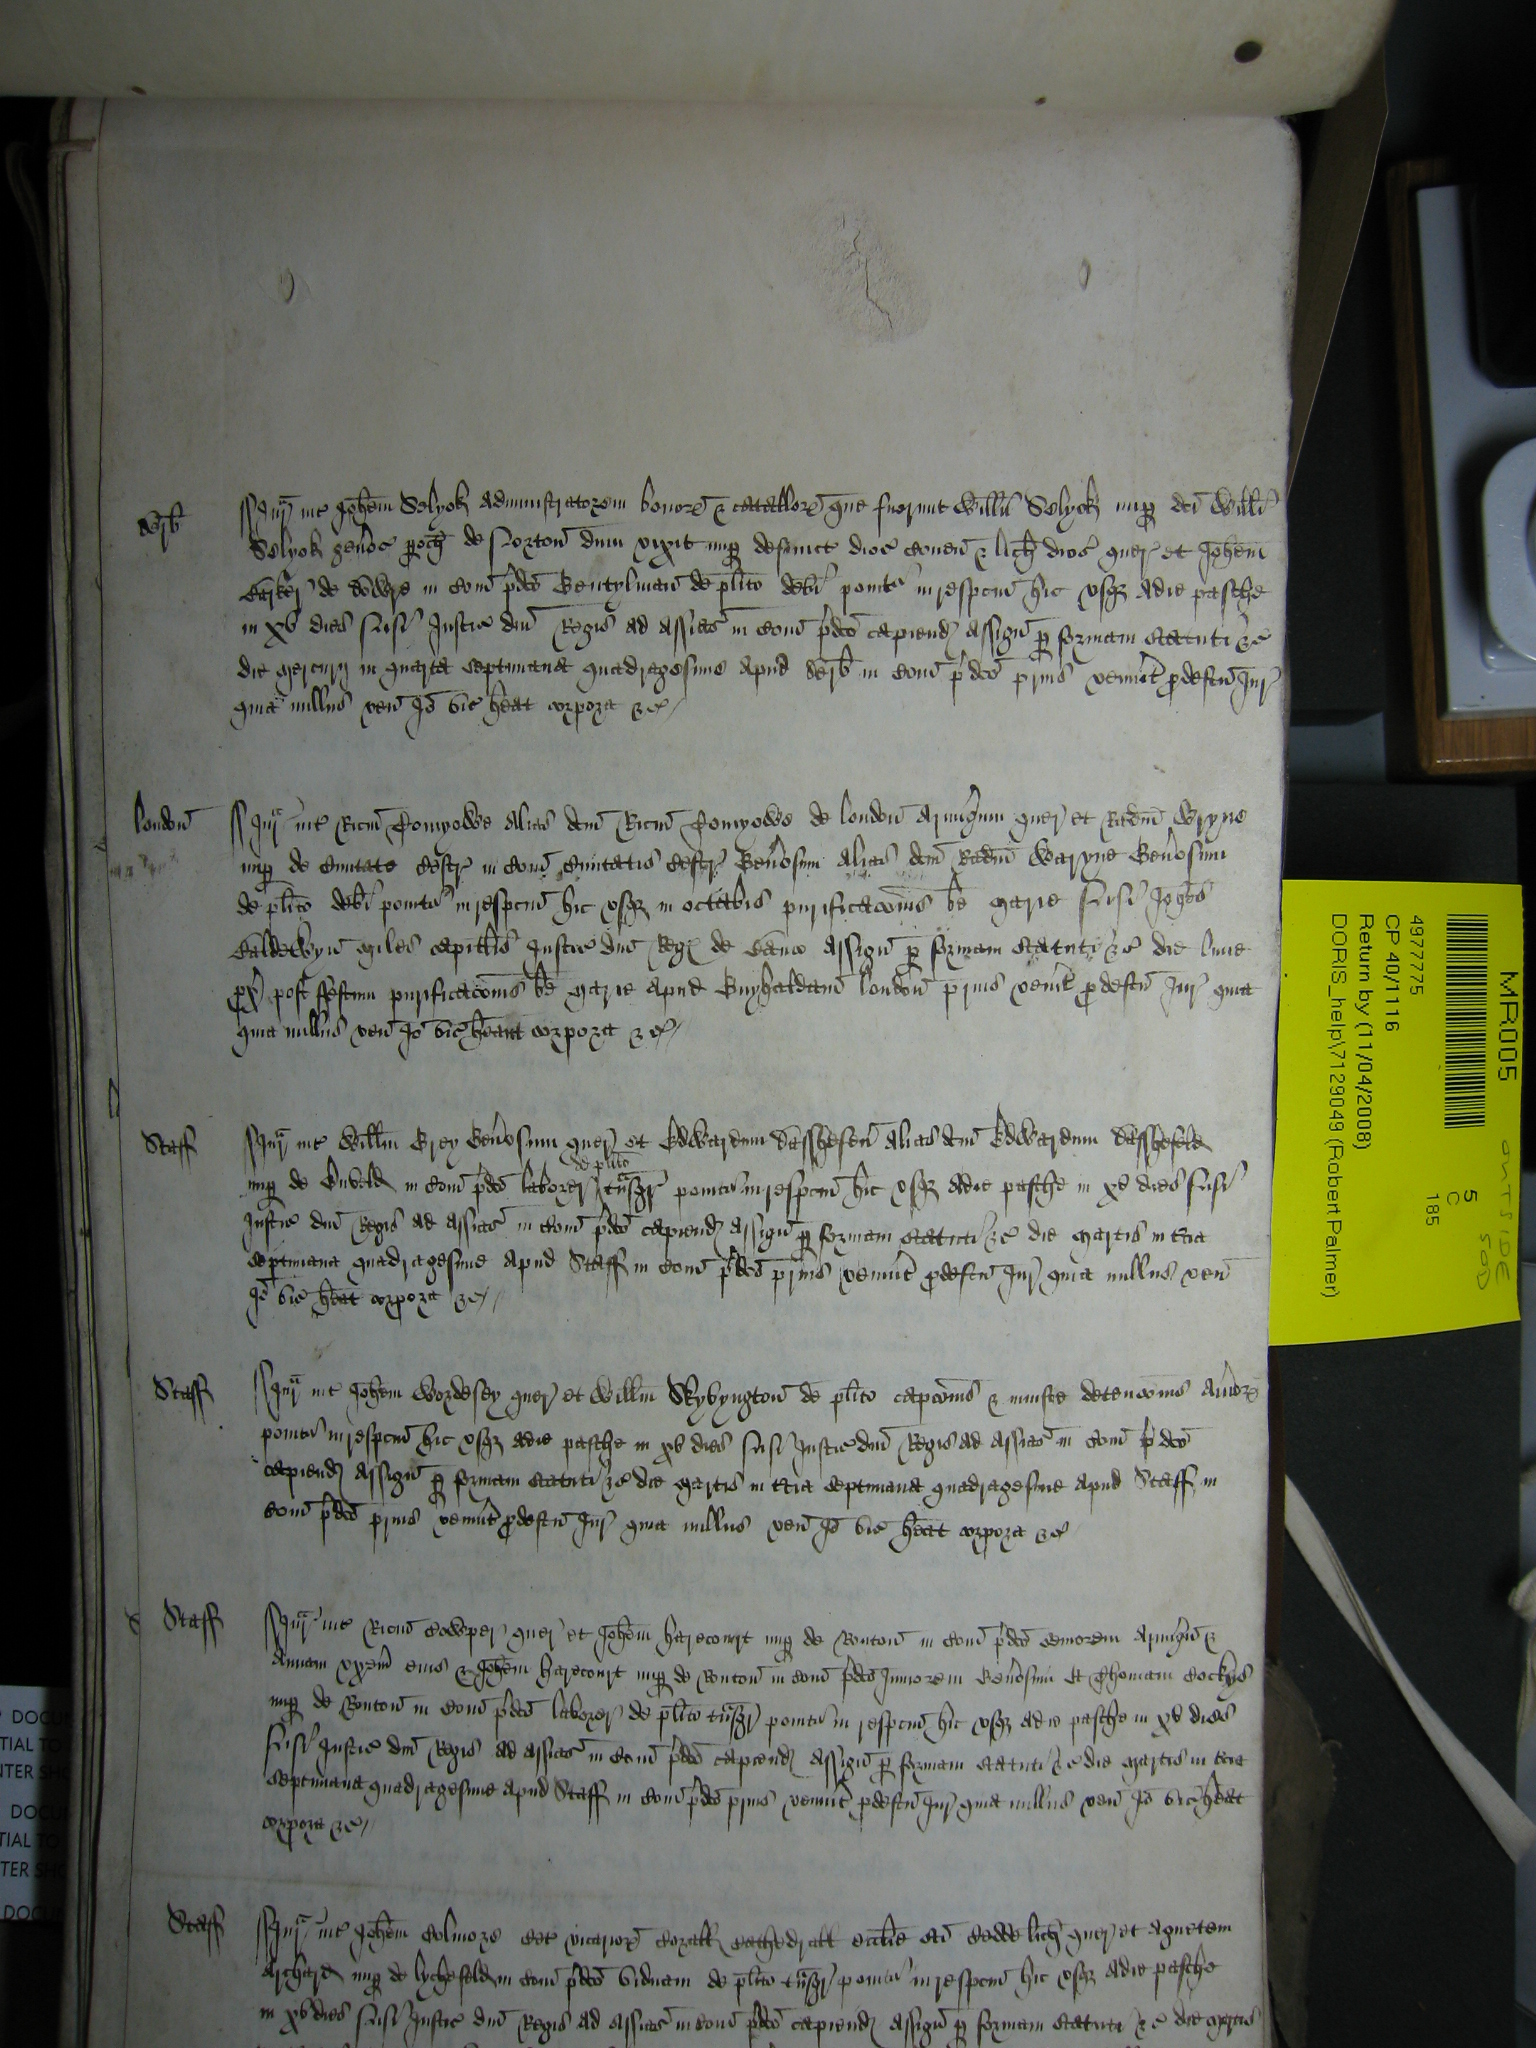 Derb
Jur inter Johem Selyok administratorem bonor & catallor que fuerunt Willi Selyok nup dci Willi
Selyok de Norton dum vixit nup defunct dioc Coven & Lich dioc quer et Johem
de in com pdco Gentylman de plito debi ponitr in respcm hic usq a die Pasche
in xv dies nisi Justic dni Regis ad assisas in com pdco capiend assign p formam statuti &c
die Mercurij in quarta septimana quadragesime apud Derb in com pdco prius venint p defcu Jur
quia nullus ven Io vic heat corpora &c
London
Jur inter Ricm alias dcm Ricm de London Armigum quer et Radm Wryne
nup de Civitate Cestr in com Civitatis Cestr Genosum alias dcm Radm Waryne Genosum
de plito debi ponitr in respcm hic usq in octabis purificacois be Marie nisi Johes
Baldewyn miles capitlis Justic dni Reg de Banco assign p formam statuti &c die lune
px post festum purificacois be Marie apud Guyhaldam London prius venit p defcu Jur quia
quia nullus ven Io vic heat corpora &c
Staff
Jur inter Willm Grey Genosum quer et Edwardum alias dcm Edwardum
de plito
nup de in com pdco laborer tnsgr ponitr in respcm hic usq a die Pasche in xv dies nisi
Justic dni Regis ad assisas in com pdco capiend assign p formam statuti &c die Martis in tcia
septimana quadragesime apud Staff in com pdco prius venint p defcu Jur quia nullus ven
Io vic heat corpora &c
Staff
Jur inter Johem Wordesey quer et Willm Skybyngton de plito capcois & iniuste detencois averior
ponitr in respcm hic usq a die Pasche in xv dies nisi Justic dni Regis ad assisas in com pdco
capiend assign p formam statuti &c die Martis in tcia septimana quadragesime apud Staff in
com pdco prius venint p defcu Jur quia nullus ven Io vic heat corpora &c
Staff
Jur inter Ricm Cowper quer et Johem Harecourt nup de Ronton in com pdco seniorem Armigum &
Annam uxem eius & Johem Harecourt nup de Ronton in com pdco Juniorem Genosum et Thomam Cockys
nup de Ronton in com pdco laborer de plito tnsgr ponitr in respcm hic usq a die Pasche in xv dies
nisi Justic dni Regis ad assisas in com pdco capiend assign p formam statuti &c die Martis in tcia
septimana quadragesime apud Staff in com pdco prius venint p defcu Jur quia nullus ven Io vic heat
corpora &c
Staff
Jur inter Johem Colmore vicarior Choral Cathedrall ecclie sci Cedde Lich quer et Agnetem
Archard nup de Lychefeld in com pdco viduam de plito tnsgr ponitr in respcm hic usq a die Pasche
in xv dies nisi Justic dni Regis ad assisas in com pdco capiend assign p formam statuti &c die Martis
MR005
49777775
CP 40/1116
Return by (11/04/2008)
DORIS_help\7129049 (Robert Palmer)
5
C
185
OUTSIDE
SOD
DOCUM
TIAL TO
NTER SHO
DOCUM
TIAL TO
TER SHO
DOCUM